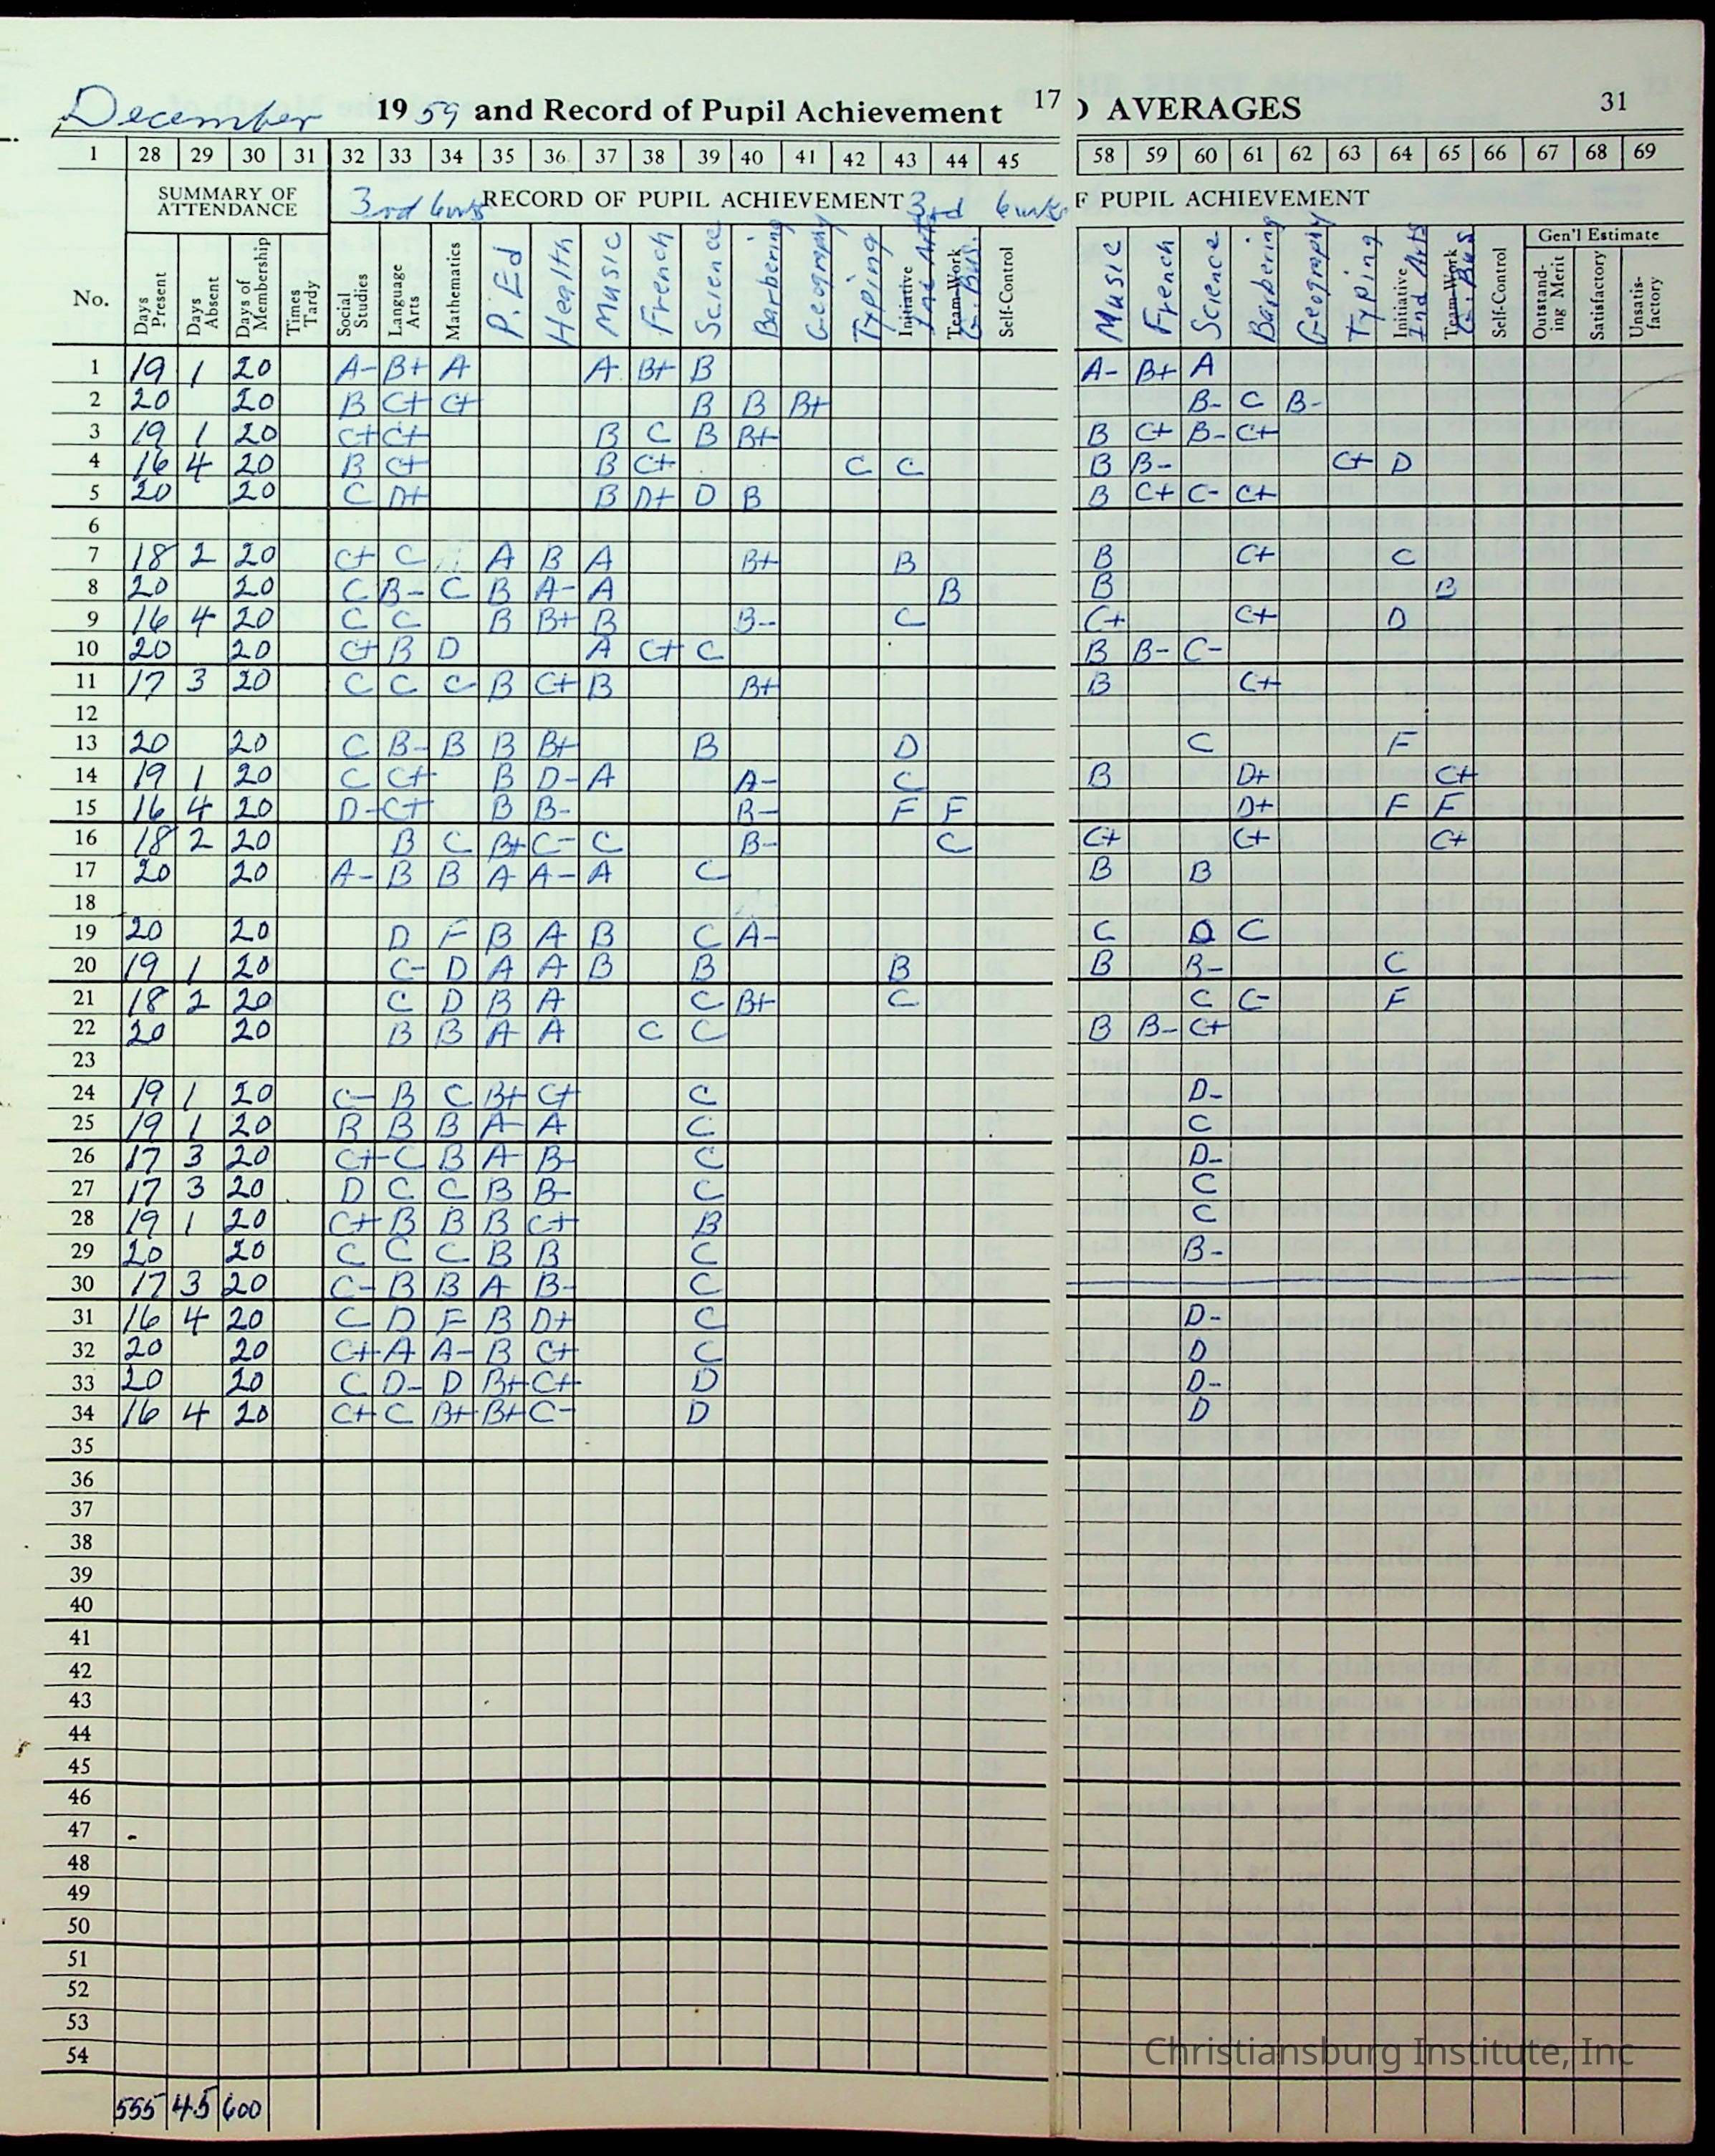 December 1959 and Record of Pupil Achievement 17 ) AVERAGES 31
1 28 29 30 31 32 33 34 35 36 37 38 39 40 41 42 43 44 45 58 59 60 61 62 63 64 65 66 67 68 69
SUMMARY OF ATTENDANCE 3rd 6wks RECORD OF PUPIL ACHIEVEMENT 3rd 6wks F PUPIL ACHIEVEMENT
Gen'l Estimate
No. Days Present Days Absent Days of Membership Times Tardy Social Studies Language Arts Mathematics P. Ed Health Music French Science Barbering Geography Typing Initiative Ind Arts Team-Work G. Bus. Self-Control Music French Science Barbering Geography Typing Initiative Ind Arts Team-Work G. Bus Self-Control Outstanding Merit Satisfactory Unsatisfactory
1 19 1 20 A- B+ A A B+ B A- B+ A
2 20 20 B C+ C+ B B B+ B- C B-
3 19 1 20 C+ C+ B C B B+ B C+ B- C+
4 16 4 20 B C+ B C+ C C B B- C+ D
5 20 20 C D+ B D+ D B B C+ C- C+
6
7 18 2 20 C+ C A B A B+ B B C+ C
8 20 20 C B- C B A- A B B B
9 16 4 20 C C B B+ B B- C C+ C+ D
10 20 20 C+ B D A C+ C B B- C-
11 17 3 20 C C C B C+ B B+ B C+
12
13 20 20 C B- B B B+ B D C F
14 19 1 20 C C+ B D- A A- C B D+ C+
15 16 4 20 D- C+ B B- B- F F D+ F F
16 18 2 20 B C B+ C- C B- C C+ C+ C+
17 20 20 A- B B A A- A C B B
18
19 20 20 D F B A B C A- C D C
20 19 1 20 C- D A A B B B B B- C
21 18 2 20 C D B A C B+ C C C- F
22 20 20 B B A A C C B B- C+
23
24 19 1 20 C- B C B+ C+ C D-
25 19 1 20 B B B A- A C C
26 17 3 20 C+ C B A- B- C D-
27 17 3 20 D C C B B- C C
28 19 1 20 C+ B B B C+ B C
29 20 20 C C C B B C B-
30 17 3 20 C- B B A B- C
31 16 4 20 C D F B D+ C D-
32 20 20 C+ A A- B C+ C D
33 20 20 C D- D B+ C+ D D-
34 16 4 20 C+ C B+ B+ C- D D
35
36
37
38
39
40
41
42
43
44
45
46
47
48
49
50
51
52
53
54
555 45 600
Christiansburg Institute, Inc